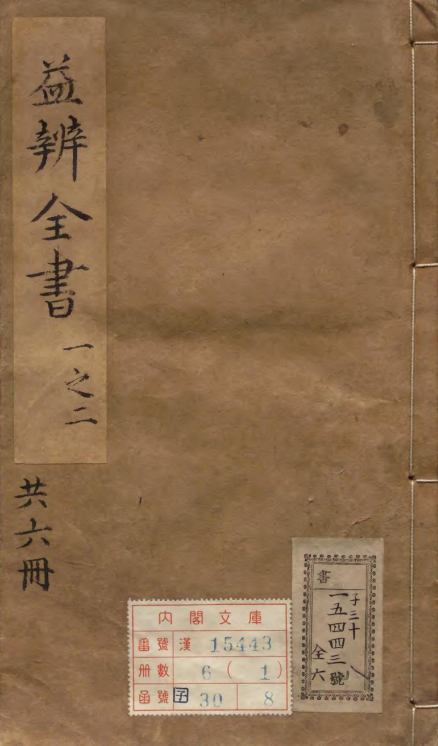 益辨全書 一之二
共六冊
書
子三十 八
一五四四三號
全六
內閣文庫
番號 漢 15443
冊數 6 (1)
函號 子 30 8